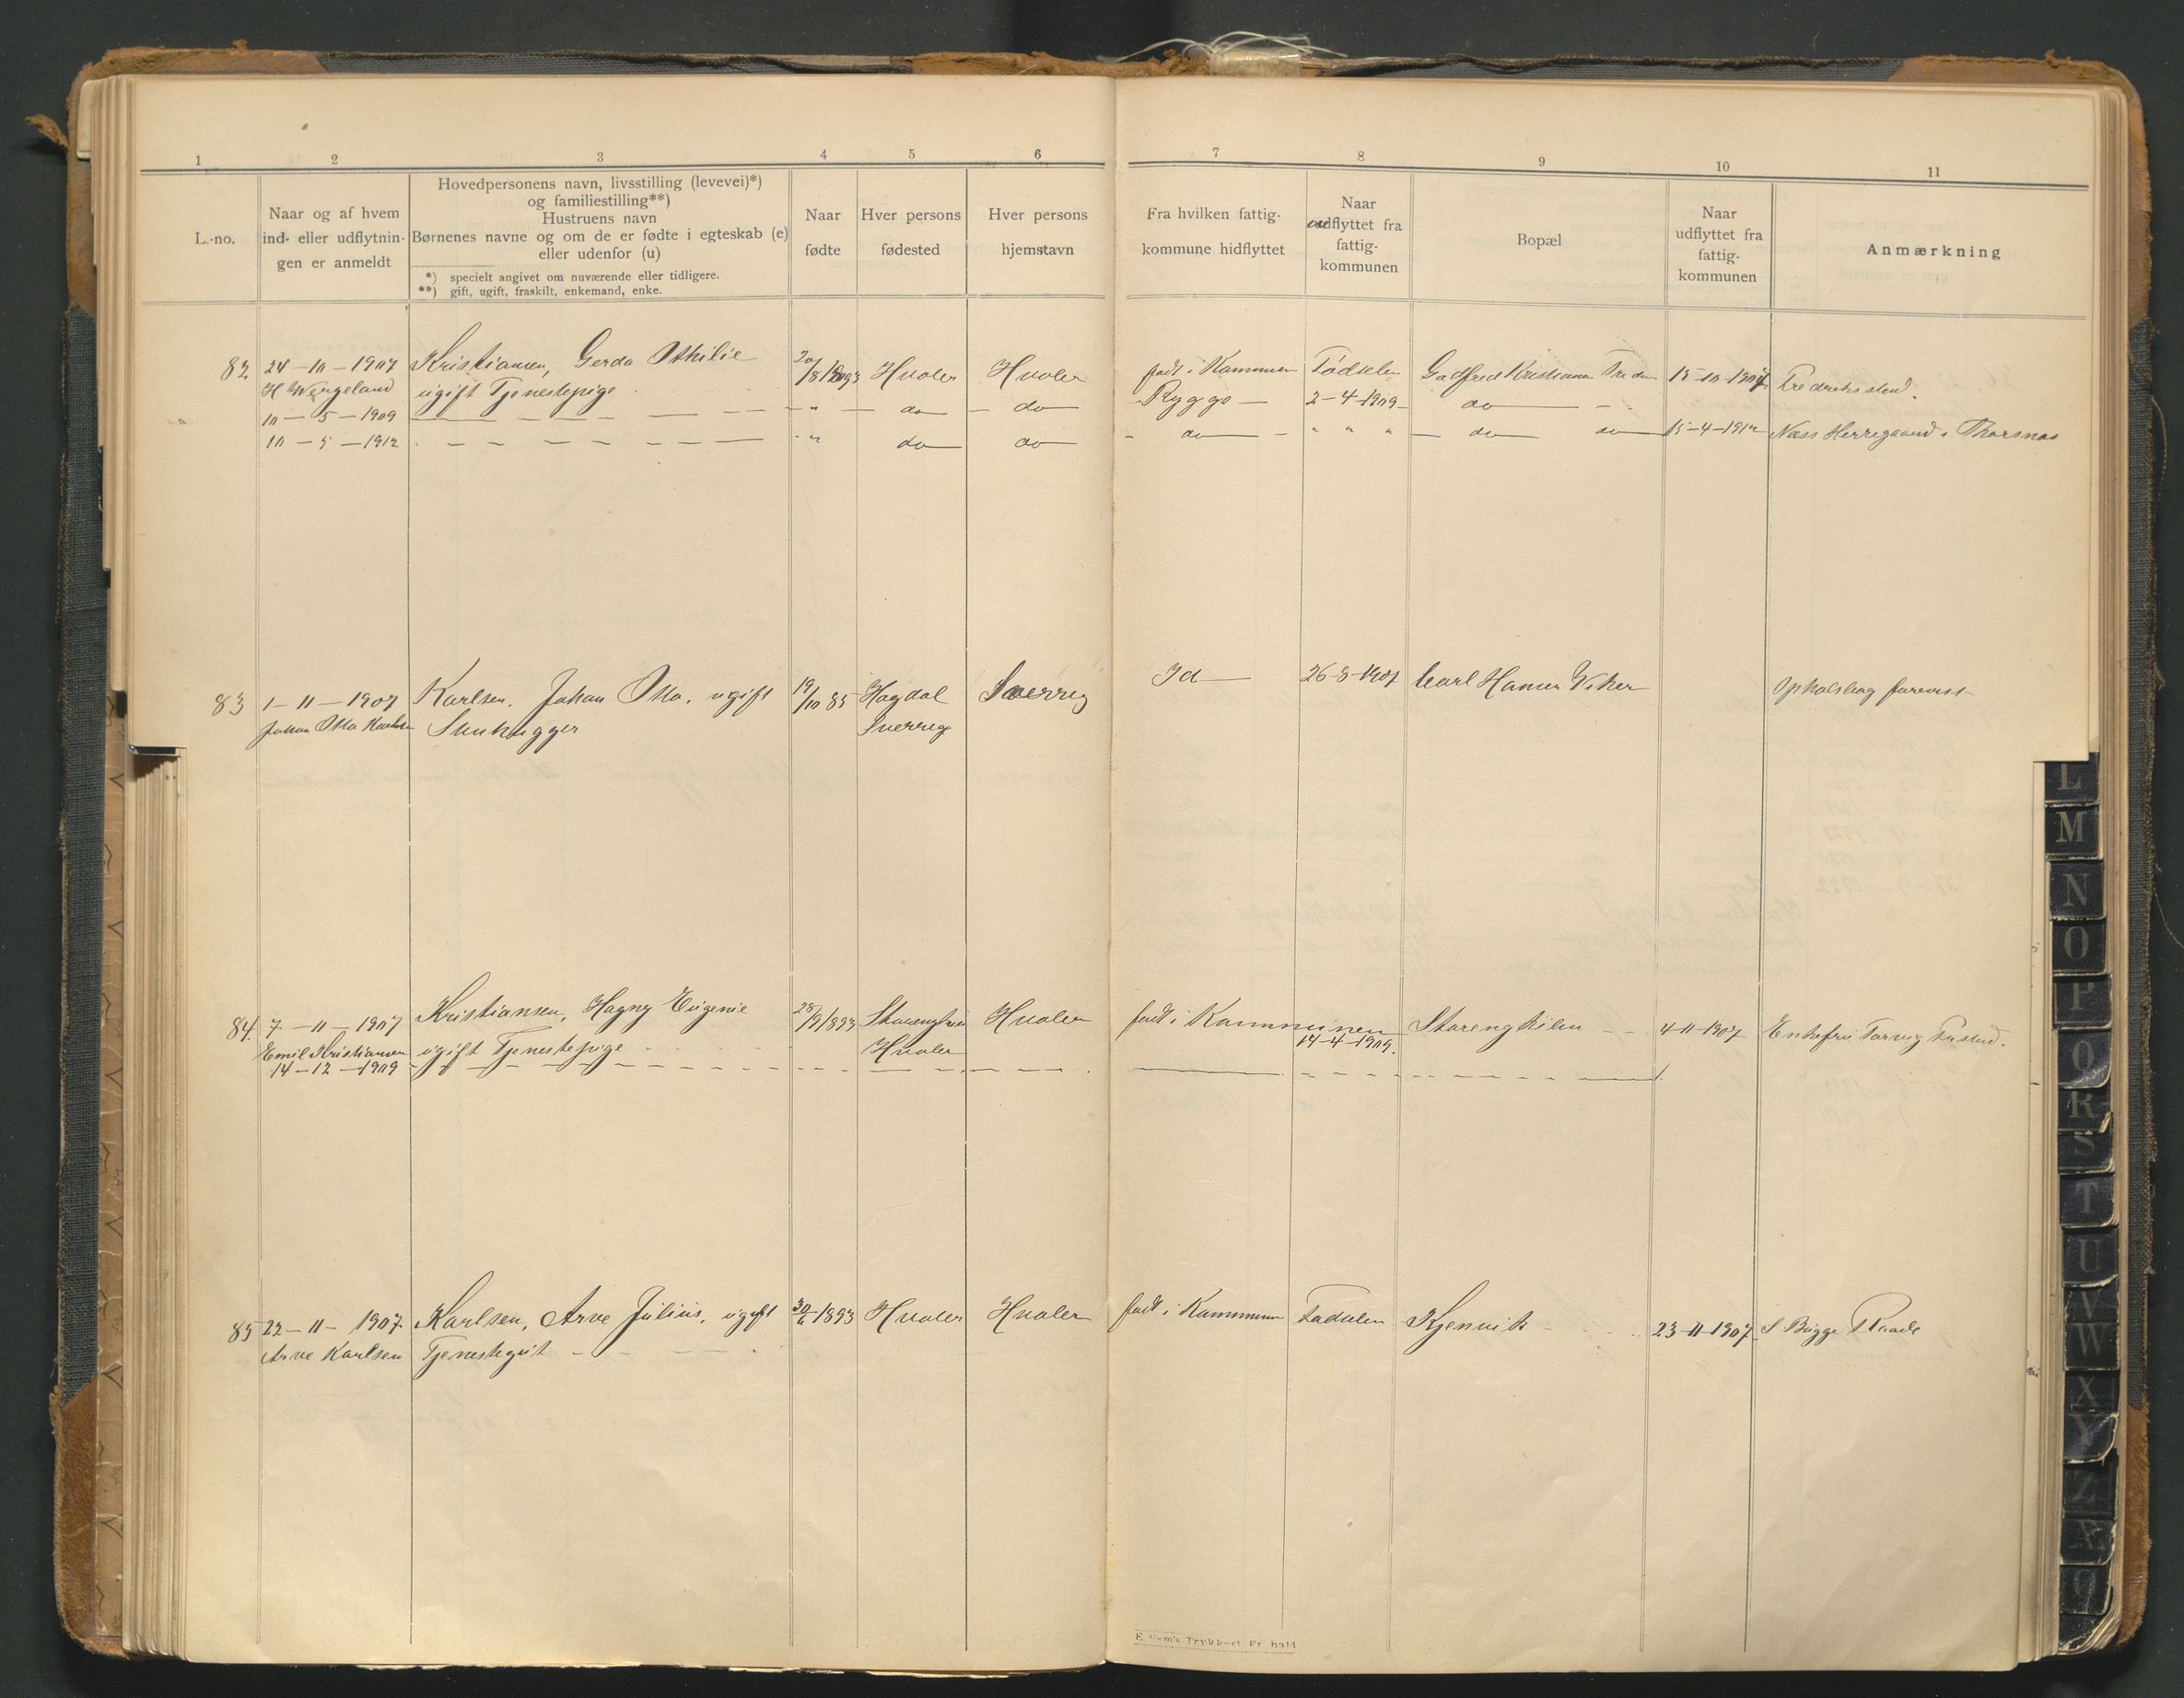 1 2 3 4 5 6 7 8 9 10 11
L.-no.
Naar og af hvem
ind- eller udflytnin-
gen er anmeldt
Hovedpersonens navn, livsstilling (levevei)*)
og familiestilling**)
Hustruens navn
Børnenes navne og om de er fødte i egteskab (e)
eller udenfor (u)
*) specielt angivet om nuværende eller tidligere.
**) gift, ugift, fraskilt, enkemand, enke.
Naar
fødte
Hver persons
fødested
Hver persons
hjemstavn
Fra hvilken fattig-
kommune hidflyttet
Naar
udflyttet fra
fattig-
kommunen
Bopæl
Naar
udflyttet fra
fattig-
kommunen
Anmærkning
82. 24-10-1907 Kristiansen, Gerda Othilie 20/8 1893 Hvaler Hvaler født i Kommunen Fødselen Godfred Kristiansen 15-10-1907 Fredriksstad.
H Wengeland ugift Tjenestepige
10-5-1909 " do do Rygge 2-4-1909 do
10-5-1912 " do do do " " " do do 15-4-1912 Næss Herregaard i Thorsnæs
83 1-11-1907 Karlsen, Johan Otto, ugift 19/10 85 Hogdal Sverrig Id 26-8-1907 Carl Hansen Viker Opholsbog forevist
Johan Otto Karlsen Stenhugger Sverrige
84. 7-11-1907 Kristiansen, Hagny Eugenie 28/9 1893 Hvaler født i Kommunen Storengkilen 4-11-1907 Enkefru
Emil Kristiansen ugift Tjenestepige Hvaler 14-4-1909.
14-12-1909
85 22-11-1907. Karlsen, Arve Julius, ugift 30/6 1893 Hvaler Hvaler født i Kommunen Fødselen Kjenvik 23-11-1907 S Bugge Raade
Arve Karlsen Tjenestegut
L
M
N
O
P
Q
R
S
T
U
V
W
X
Y
Z
Æ
Ø